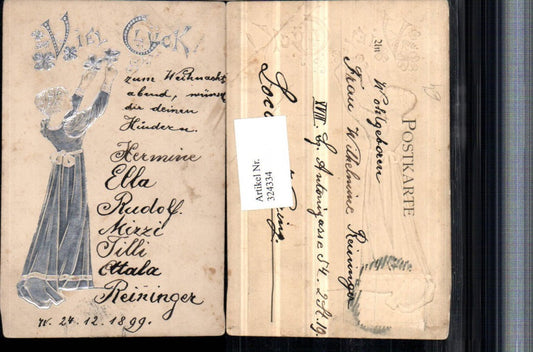 Viel Glück
zum Weihnachts
abend, wünschen
dir deinen
Kindern.
Hermine
Ella
Rudolf.
Mizzi
Tilli
Reininger
W. 24.12.1899.
POSTKARTE
An
Wohlgeboren
Frau Wilhelmine Reininger
XVIII. Antonigasse 54. 2.St.
Loco
Artikel Nr.
324334